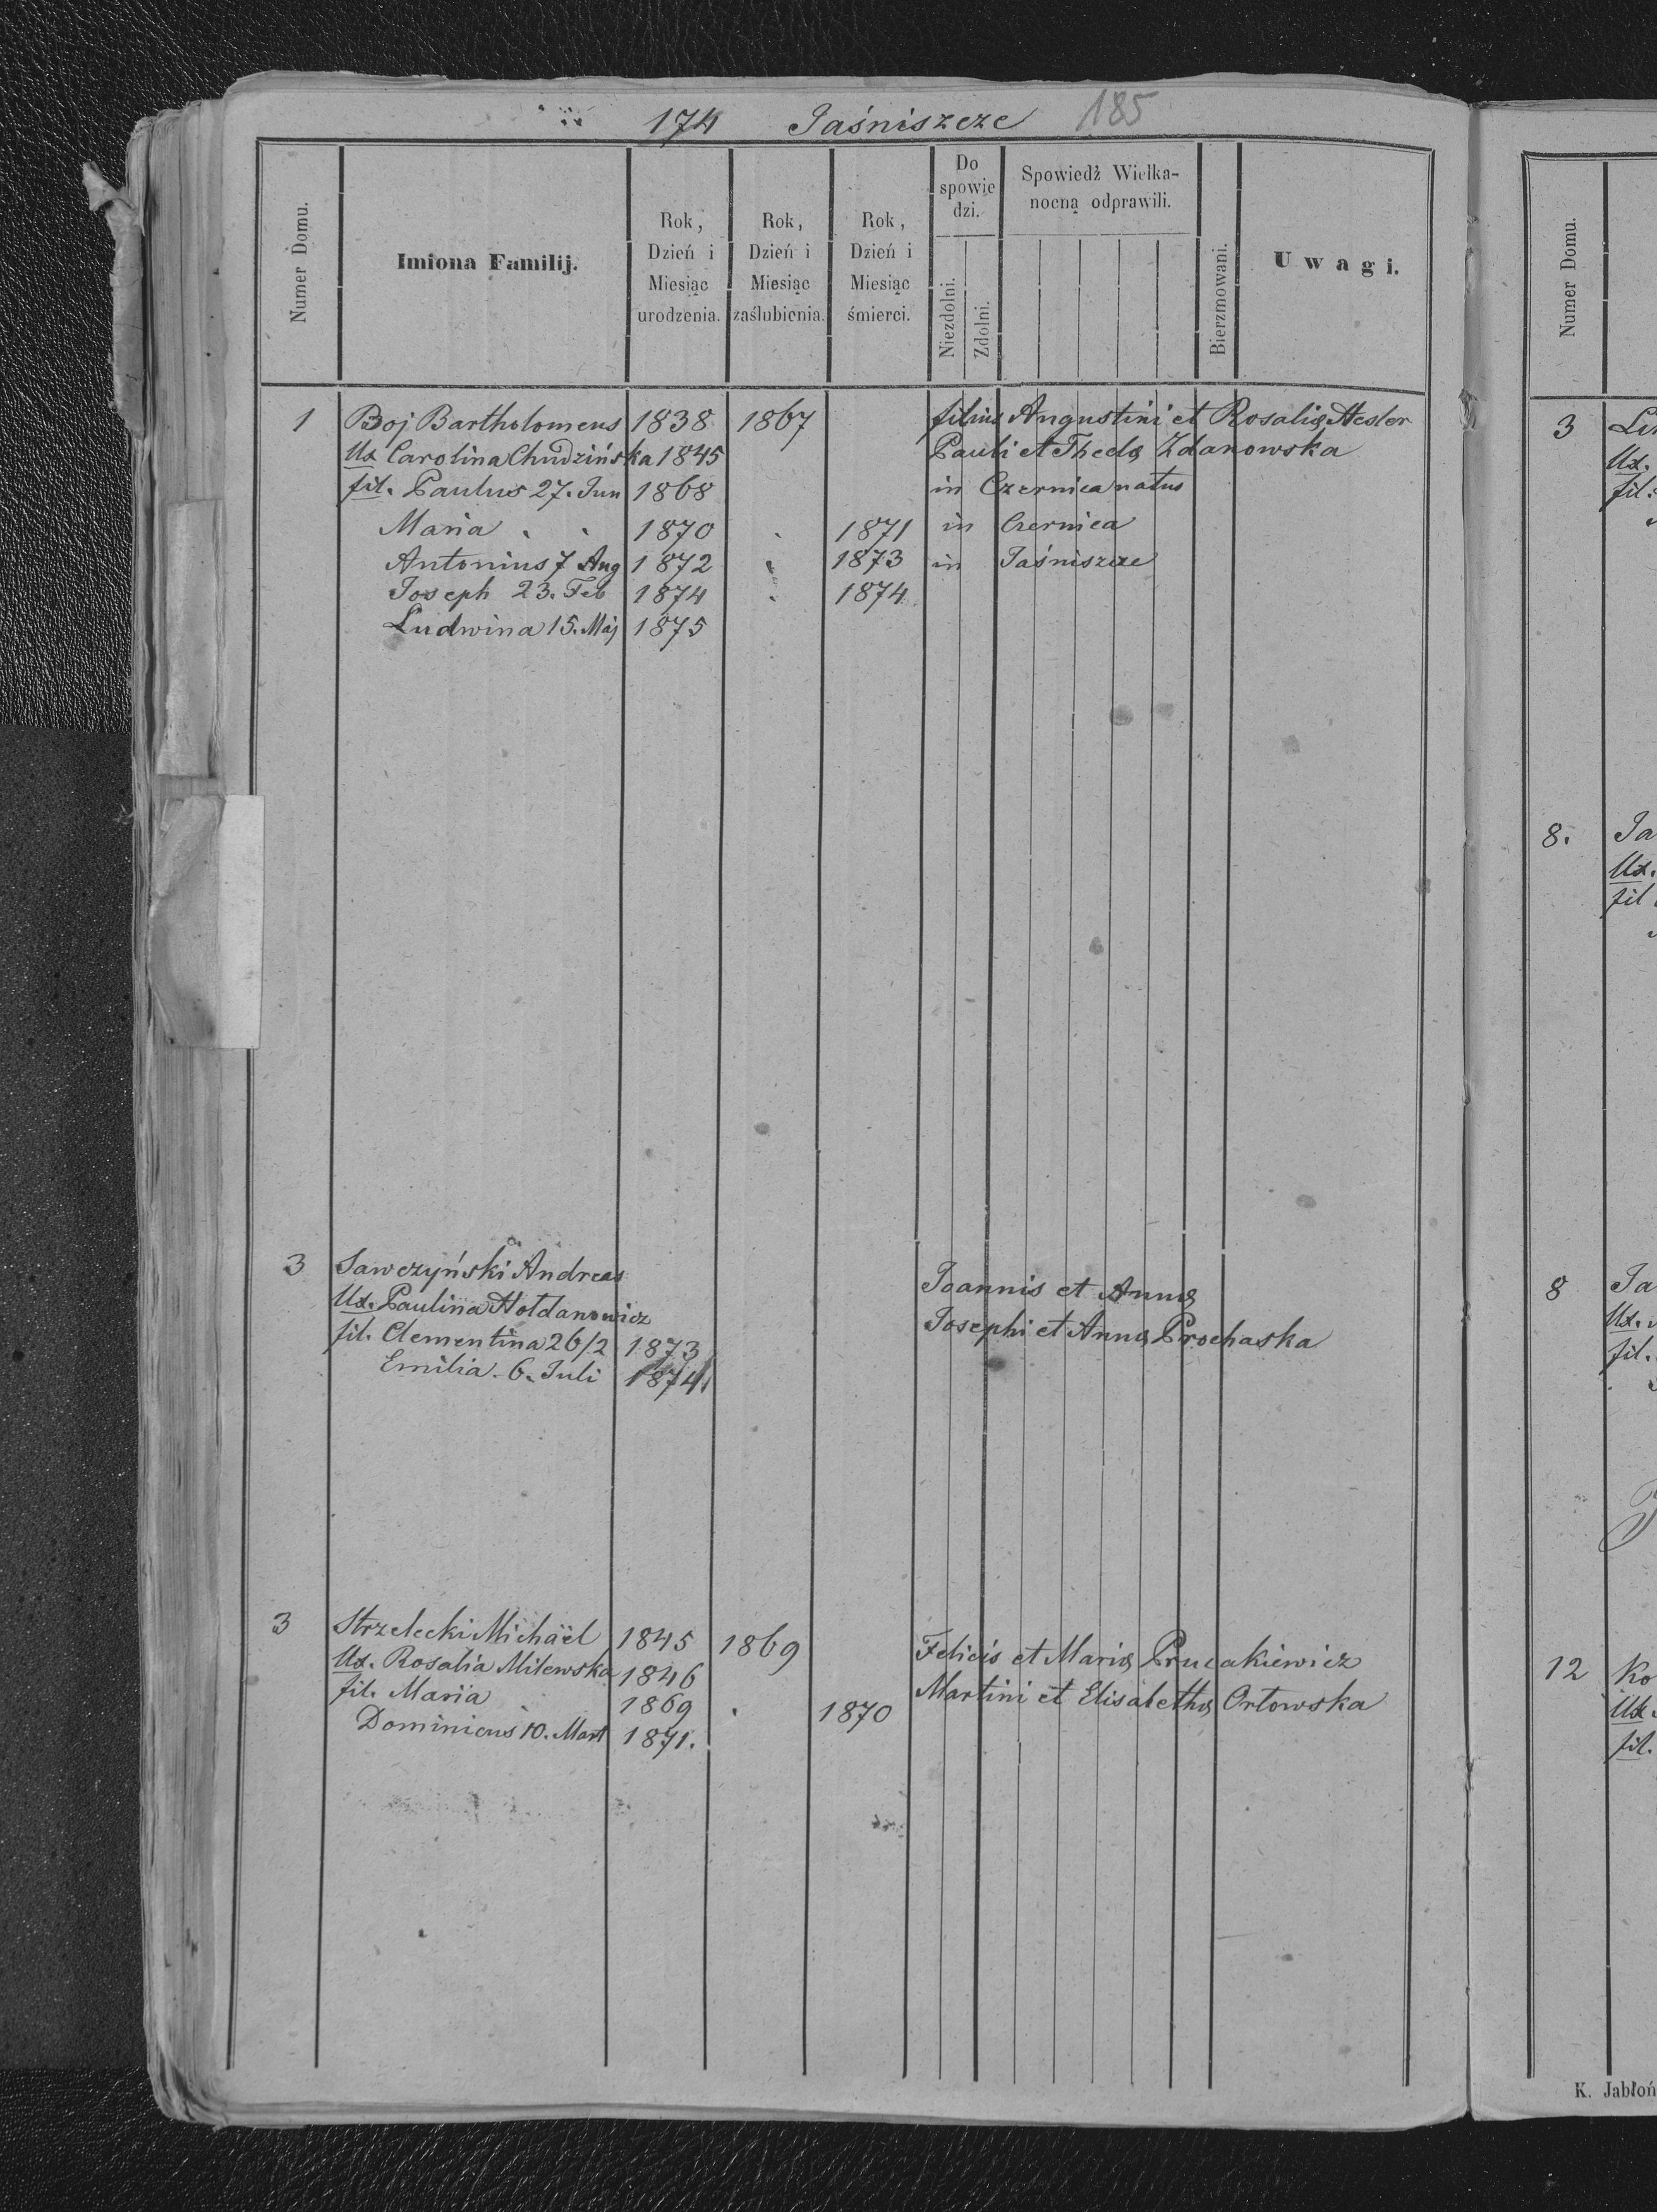 174 Jaśniszcze 185
Numer Domu.
Imiona Familij.
Rok, Dzień i Miesiąc urodzenia.
Rok, Dzień i Miesiąc zaślubienia.
Rok, Dzień i Miesiąc śmierci.
Do spowie dzi.
Niezdolni.
Zdolni.
Spowiedź Wielka- nocną odprawili.
Bierzmowani.
Uwagi.
1 Boj Bartholomeus 1838 1867 filius Augustini et Rosaliæ Hesler
Ux Carolina Chudzińska 1845 Pauli et Theclæ Zdanowska
fil. Paulus 27. Jun 1868 in Czernica natus
Maria 1870 1871 in Czernica
Antonius 7 Aug 1872 1873 in Jaśniszcze
Joseph 23. Feb 1874 1874
Ludwina 15. Maj 1875
3 Sawczyński Andreas Joannis et Annæ
Ux. Paulina Hołdanowicz Josephi et Annæ Prochaska
fil. Clementina 26/2 1873
Emilia. 6. Juli 1874
3 Strzelecki Michaël 1845 1869 Felicis et Mariæ Prucakiewicz
Ux. Rosalia Milewska 1846 Martini et Elisabethæ Orłowska
fil. Maria 1869 1870
Dominicus 10. Mart 1871.
Numer Domu.
3
Ux.
fil.
8. Ja
Ux.
fil
8 Ja
Ux.
fil.
12 Ko
Ux.
fil.
K. Jabłoń